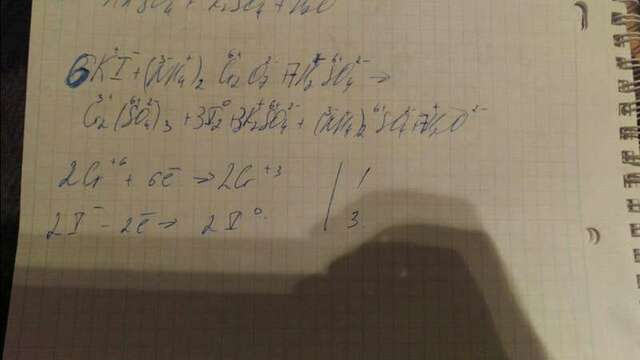 6KI + (NH4)2 Cr2O7 + 7H2SO4 →
Cr2(SO4)3 + 3I2 + 3K2SO4 + (NH4)2SO4 + 7H2O
2Cr+6 + 6ē → 2Cr+3 | 1
2I- - 2ē → 2I0 | 3